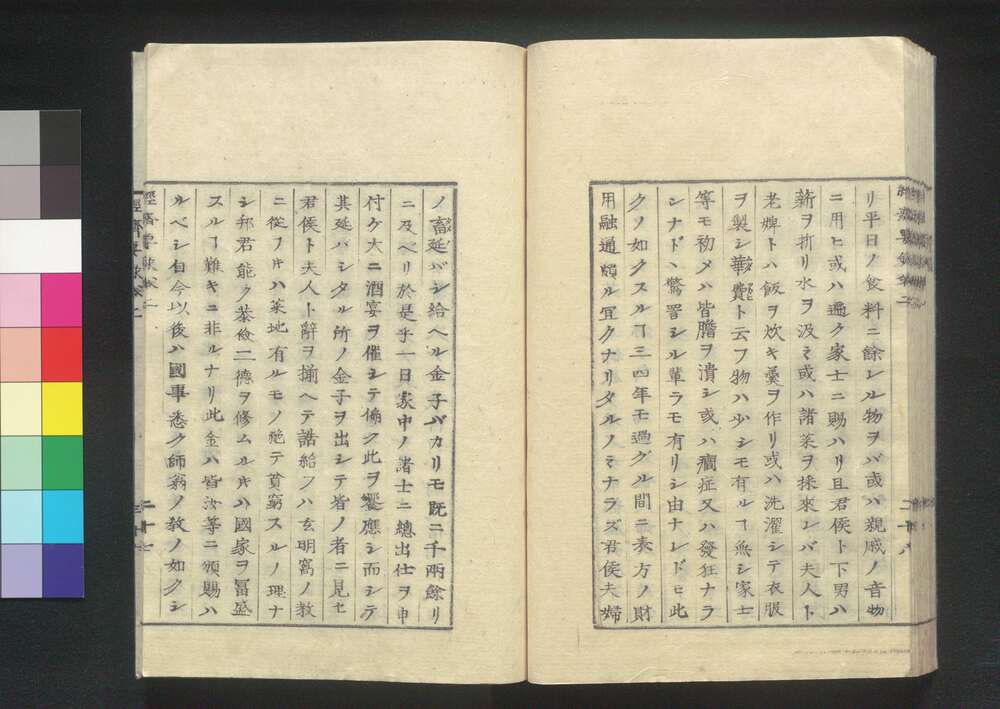 リ平日ノ飮料ニ餘レル物ヲバ或ハ親戚ノ音物
ニ用ヒ或ハ遍ク家士ニ賜ハリ且君侯ト下男ハ
薪ヲ折リ水ヲ汲ミ或ハ諸菜ヲ採來レバ夫人ト
老婢トハ飯ヲ炊キ羹ヲ作リ或ハ洗濯シテ衣服
ヲ製シ華費ト云フ物ハ少シモ有ルヿ無シ家士
等モ初メハ皆膽ヲ潰シ或ハ癇症又ハ發狂ナラ
シナドヽ驚詈シル輩ラモ有リシ由ナレドヒ此
クノ如クスルヿ三四年モ過グル間ニ表方ノ財
用融通頗ル宜クナリタルノミナラズ君侯夫婦
ノ畜延バシ給ヘル金子バカリモ既ニ千兩餘リ
ニ及ベリ於是乎一日家中ノ諸士ニ總出仕ヲ申
付ケ大ニ酒宴ヲ催シテ徧ク此ヲ饗應シ而シテ
其延バシタル所ノ金子ヲ出シテ皆ノ者ニ見セ
君侯ト夫人ト辭ヲ揃ヘテ誥給フハ玄明窩ノ教
ニ從フ片ハ菜地有ルモノ絶テ貧窮スルノ理ナ
シ邦君能ク恭儉二德ヲ修ムル片ハ國家ヲ冨盛
スルヿ難キニ非ルナリ此金ハ皆汝等ニ頒賜ハ
ルベシ自今以後ハ國事悉ク師翁ノ教ノ如クシ